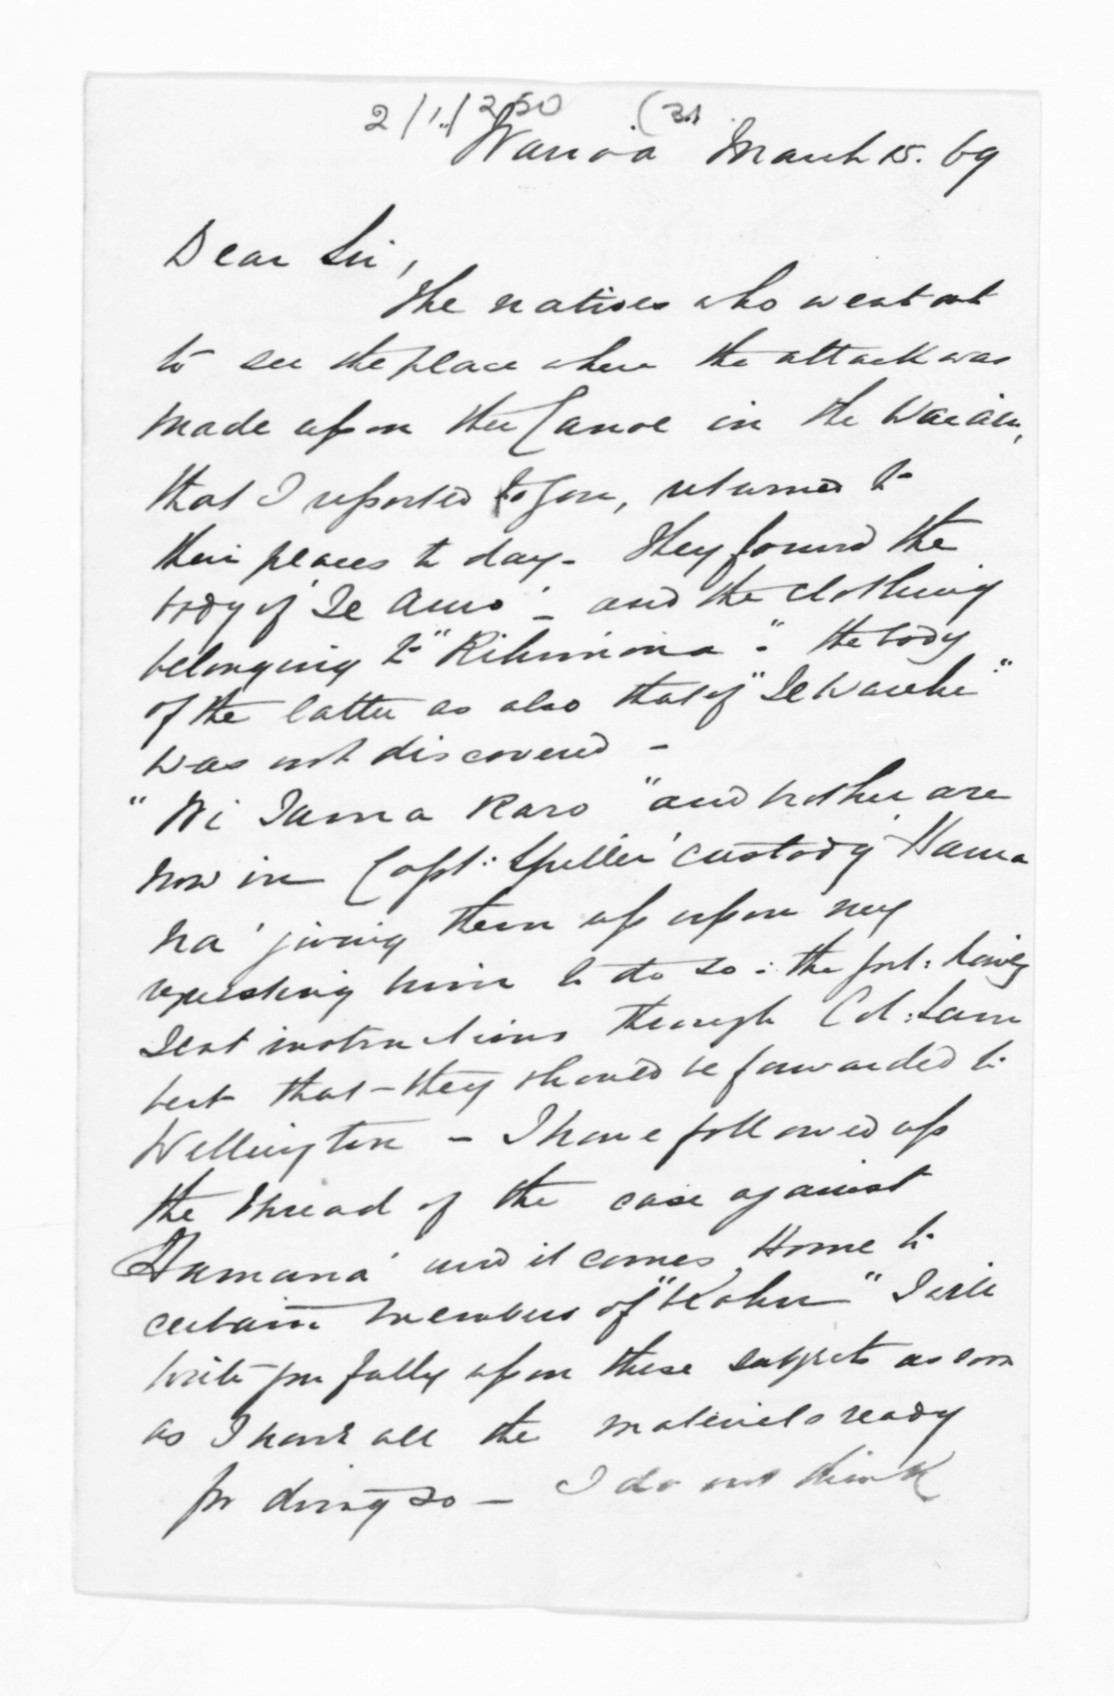 Wairoa March 15. 69
Dear Sir,
The natives who went out
to see the place where the attack was
made upon the Canoe in the Waiau,
that I reported to you, returned to
their places to day - They found the
body of 'Te Amo' - and the clothing
belonging to "Rihimona". the body
of the latter as also that of "Te Waeehe"
was not discovered -
"Wi Tama Karo" and brother are
now in Capt: Spiller' custody 'Hama
na' giving them up upon my
requesting him to do so: the Govt: having
sent instructions through Col: Lam
bert that they should be forwarded to
Wellington - I have followed up
the thread of the case against
Hamana' and it comes Home to
certain members of "Kahu" I will
write you fully upon these subjects as soon
as I have all the materials ready
for doing so - I do not think